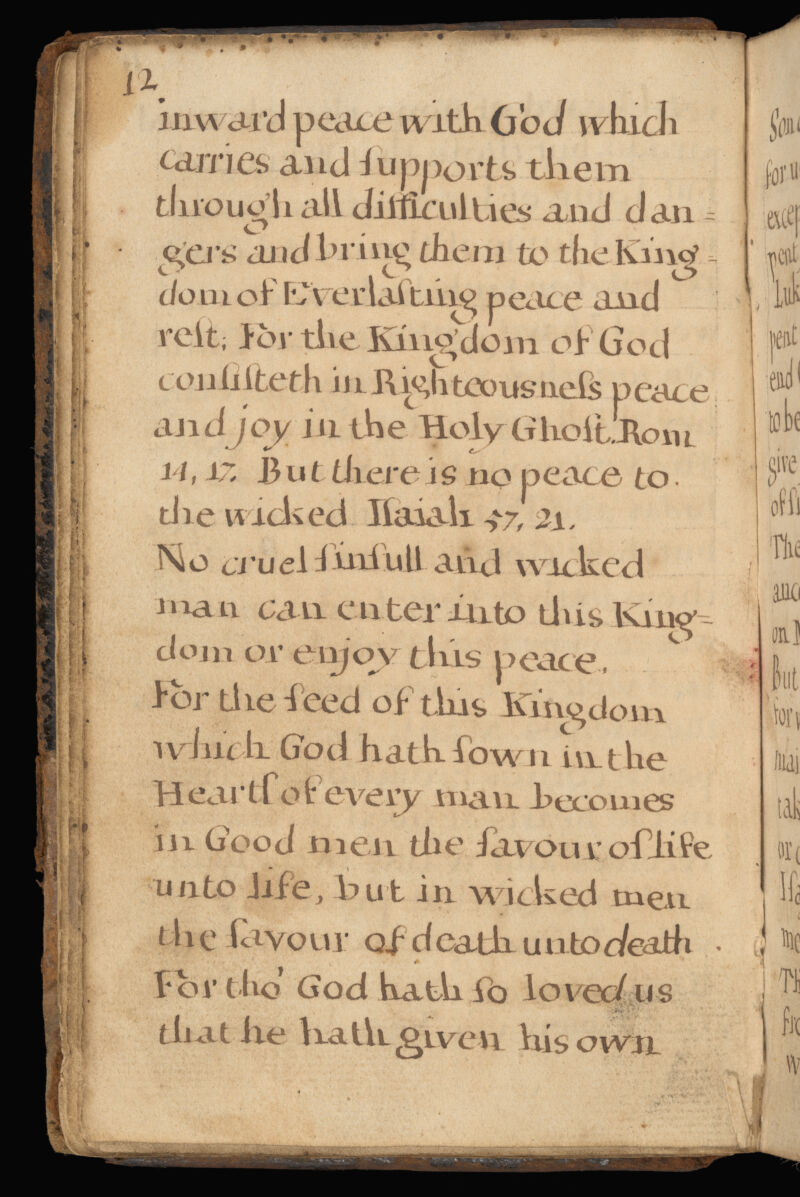 12.
inward peace with God which
carries and ſupports them
through all difficulties and dan =
gers and bring them to the King =
dom of Everlaſting peace and
reſt; For the Kingdom of God
conſiſteth in Righteousneſs peace
and joy in the Holy Ghoſt. Rom
14, 17. But there is no peace to
the wicked Iſaiah 57, 21.
No cruel ſinfull and wicked
man can enter into this King =
dom or enjoy this peace.
For the ſeed of this Kingdom
which God hath ſown in the
Heartſ of every man becomes
in Good men the ſavour of life
unto life, but in wicked men
the ſavour of death unto death .
For tho' God hath ſo loved us
that he hath given his own
for u
pent
Luk
pent
end
to be
give
of ſi
The
on
But
tak
Iſa
Th